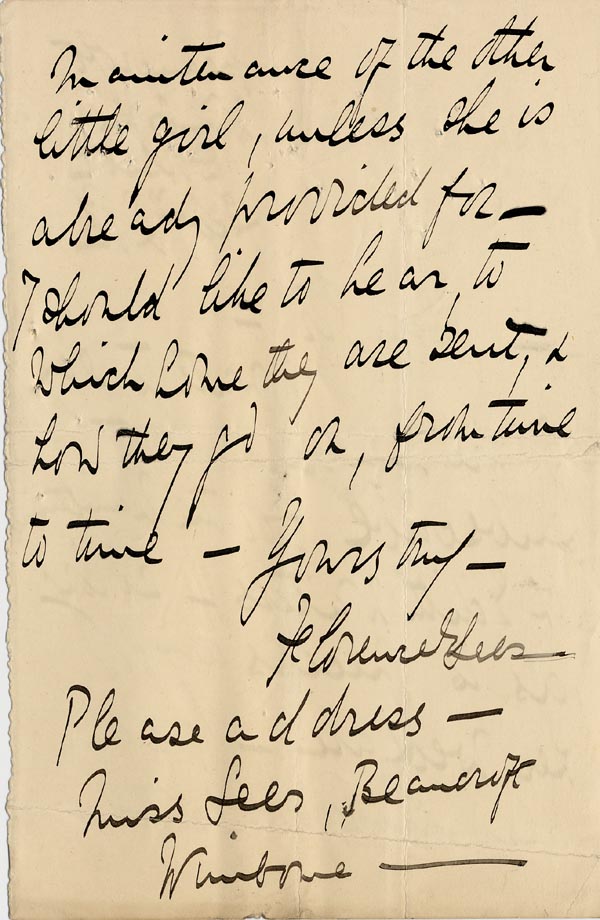 Maintenance of the other
little girl, unless she is
already provided for —
I should like to hear, to
which home they are sent, &
how they go on, from time
to time — Yours truly —
Florence Lees
Please address —
Miss Lees, Beaucroft
Wimborne —